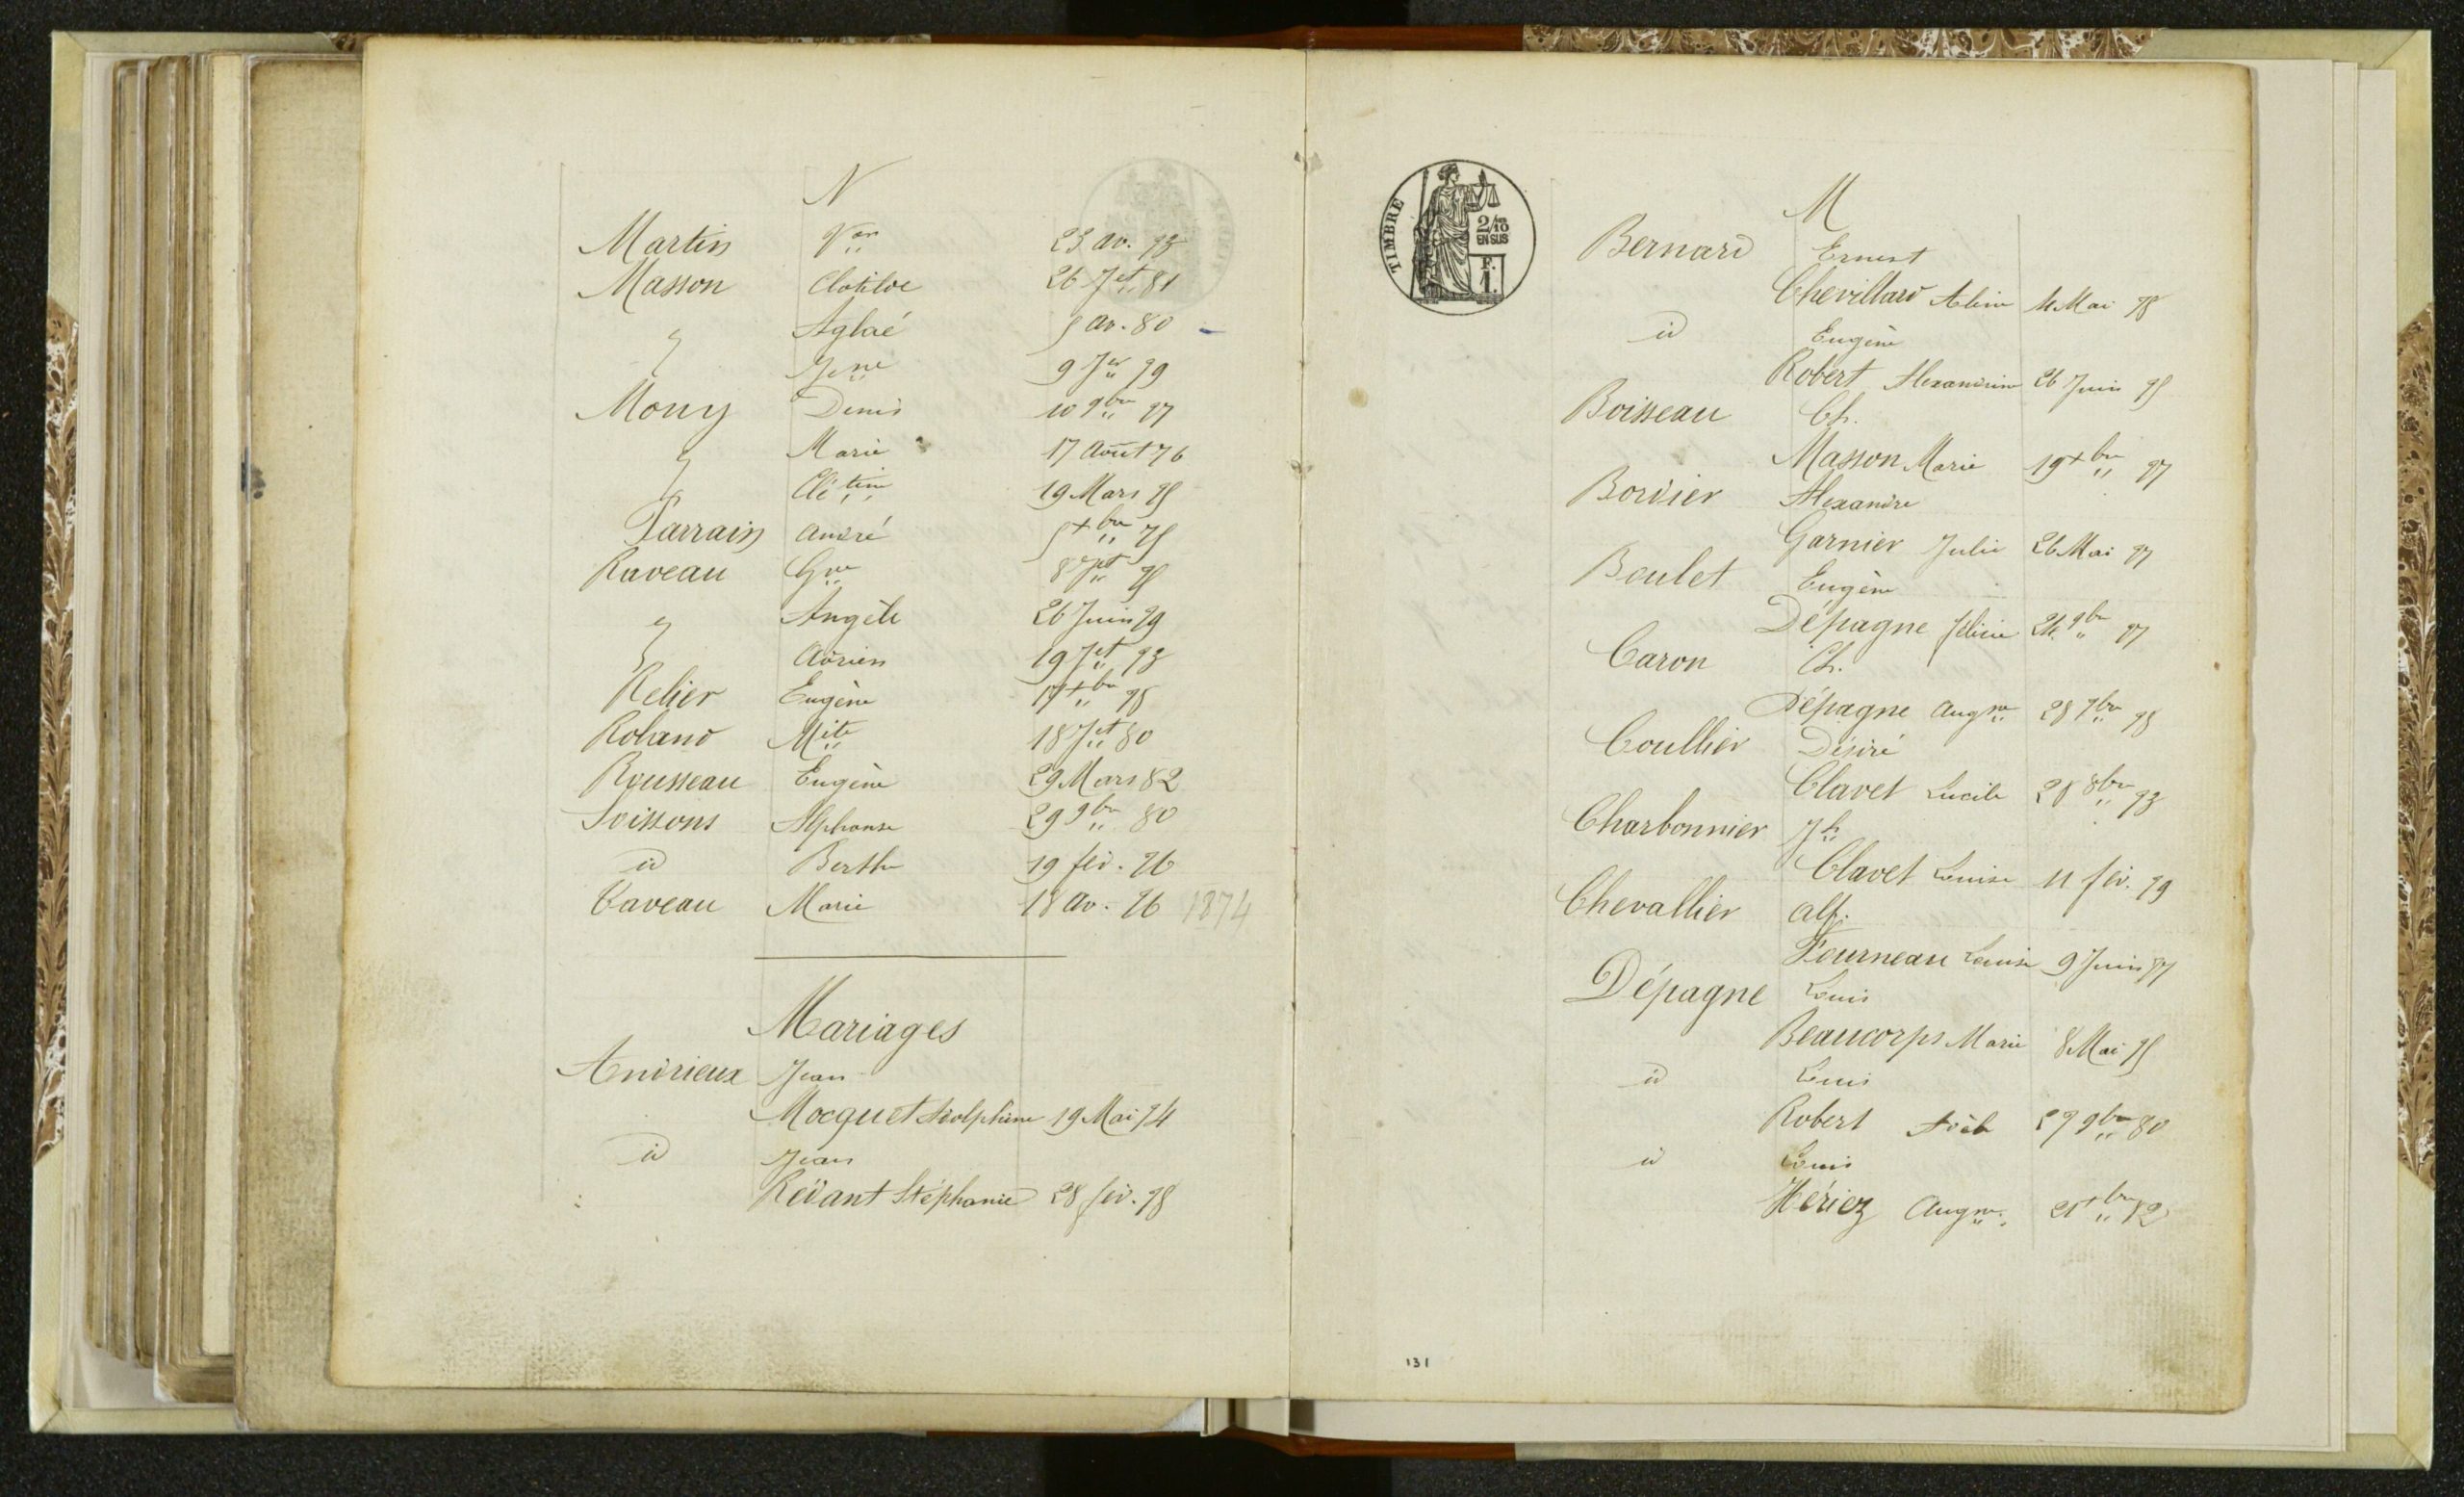 N
Martin Vor 23 av. 73
Masson Clotilde 26 Jet 81
" Aglaé 5 av. 80
" Jne 9 Jer 79
Mouy Denis 10 9bre 77
" Marie 17 Août 76
" Clétine 19 Mars 75
Parrain André 5 xbre 75
Raveau Gve 8 7pt 75
" Angèle 26 Juin 79
" Adrien 19 Jet 73
Relier Eugène 17 xbre 75
Roland Mite 18 Jet 80
Rousseau Eugène 29 Mars 82
Soissons Alphonse 29 9bre 80
id Berthe 19 fév. 76
Vaveau Marie 18 av. 76 1874
Mariages
Andrieux Jean
Mocquet Adolphine 19 Mai 74
id Jean
Rédant Stéphanie 28 fév. 78
TIMBRE
2/10
EN SUS
F.
1.
M
Bernard Ernest
Chevillard 4 Mai 78
id Eugène
Robert Alexandrine 26 Juin 75
Boisseau Ch.
Masson Marie 19 xbre 77
Bordier Alexandre
Garnier Julie 26 Mai 77
Boulet Eugène
Dépagne félicie 24 9bre 77
Caron Ch.
Dépagne Augne 28 7bre 78
Coullier Désiré
Clavet Lucile 28 8bre 73
Charbonnier Jh
Clavet Louise 11 fév. 79
Chevallier Alf.
Fourneau Louise 9 Juin 77
Dépagne Louis
Beaucorps Marie 8 Mai 75
id Louis
Robert Adèle 27 9bre 80
id Louis
Hériez Augne. 21 xbre 82
131